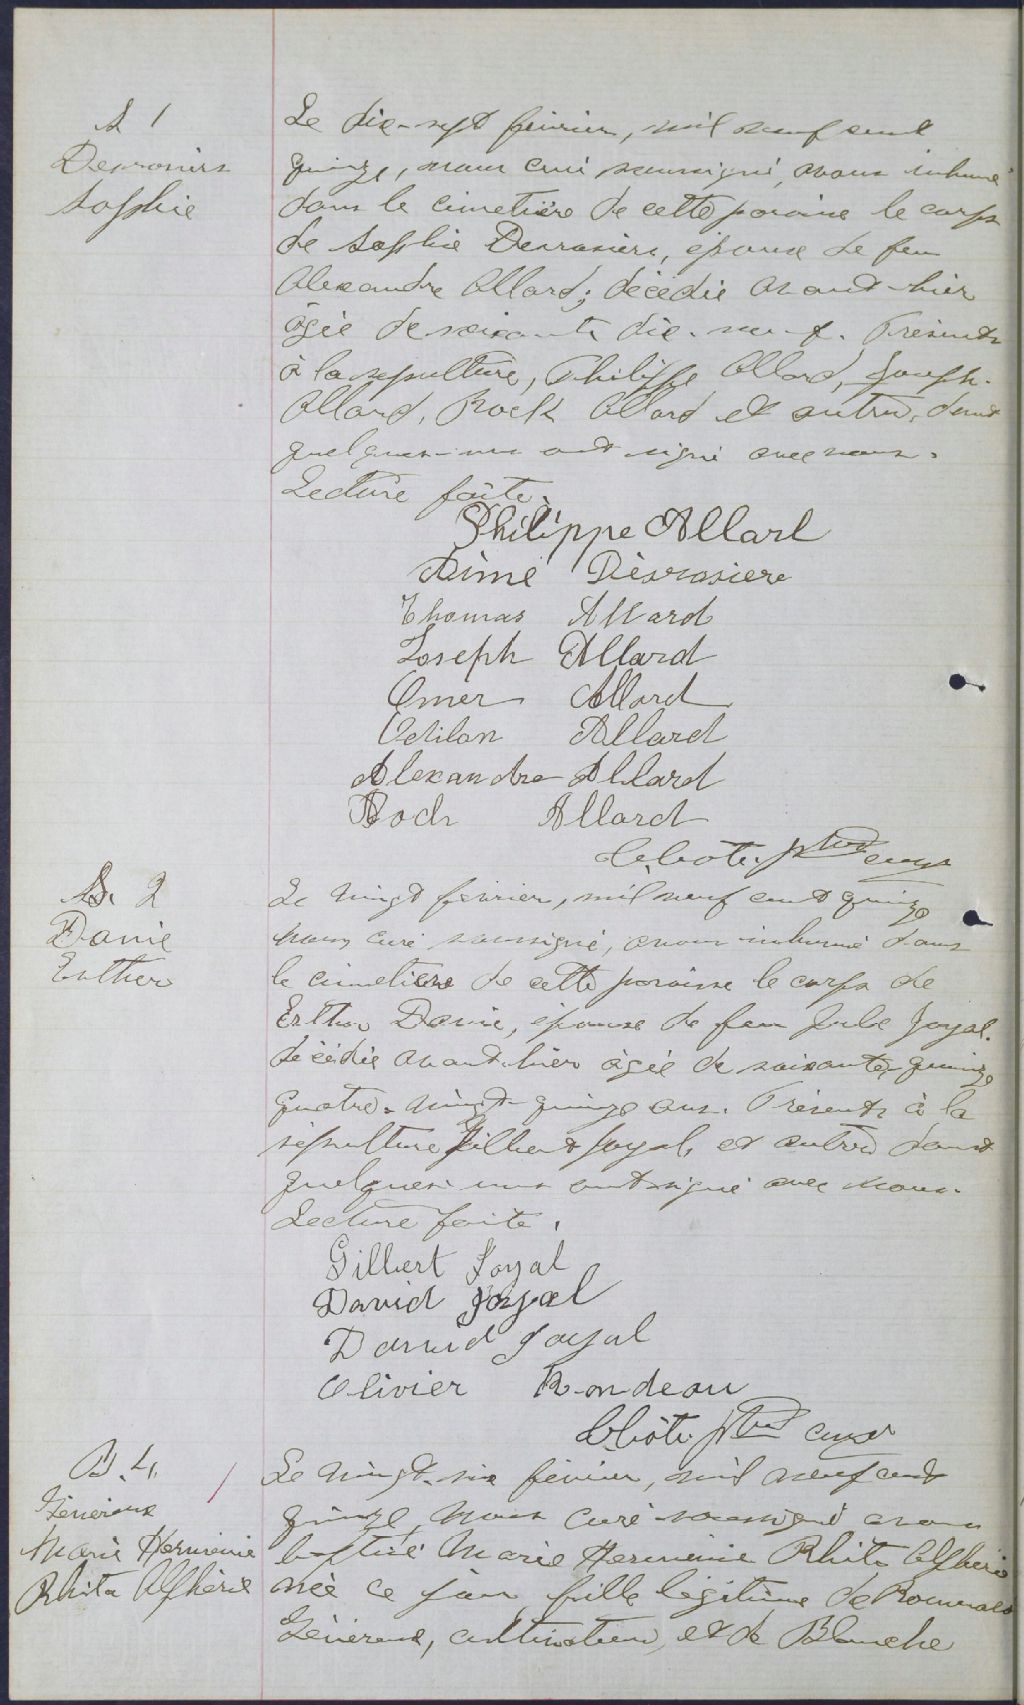 S 1
Desrosiers
Sophie
Le dix-sept février, mil neuf cent
quinze, nous curé soussigné, avons inhumé
dans le cimetière de cette paroisse le corps
de Sophie Desrosiers, épouse de feu
Alexandre Allard; décédée avant-hier
âgée de soixante dix-neuf. Présents
à la sépulture, Philippe Allard, Joseph
Allard, Rock Allard et autres, dont
quelques-uns ont signé avec nous.
Lecture faite.
Philippe Allard
Aimé Désrosiere
Thomas Allard
Joseph Allard
Omer Allard
Odilon Allard
Alexandre Allard
Roch Allard
ptre curé
S. 2
Danie
Esther
Le vingt février, mil neuf cent quinze
nous curé soussigné, avons inhumé dans
le cimetière de cette paroisse le corps de
Esther Danie, épouse de feu Jules Joyal.
décédée avant-hier âgée de soixante-quinze
quatre-vingt-quinze ans. Présents à la
sépulture Gilbert Joyal, et autres dont
quelques-uns ont signé avec nous.
Lecture faite.
Gilbert Joyal
David Joyal
David Joyal
Olivier Rondeau
ptre curé
B. 4.
Généreux
Marie Herménie
Rhita Alphérie
Le vingt-six février, mil neuf cent
quinze, nous curé soussigné avons
baptisé Marie Herménie Rhita Alphérie
née ce jour, fille légitime de Romuald
Généreux, cultivateur, et de Blanche